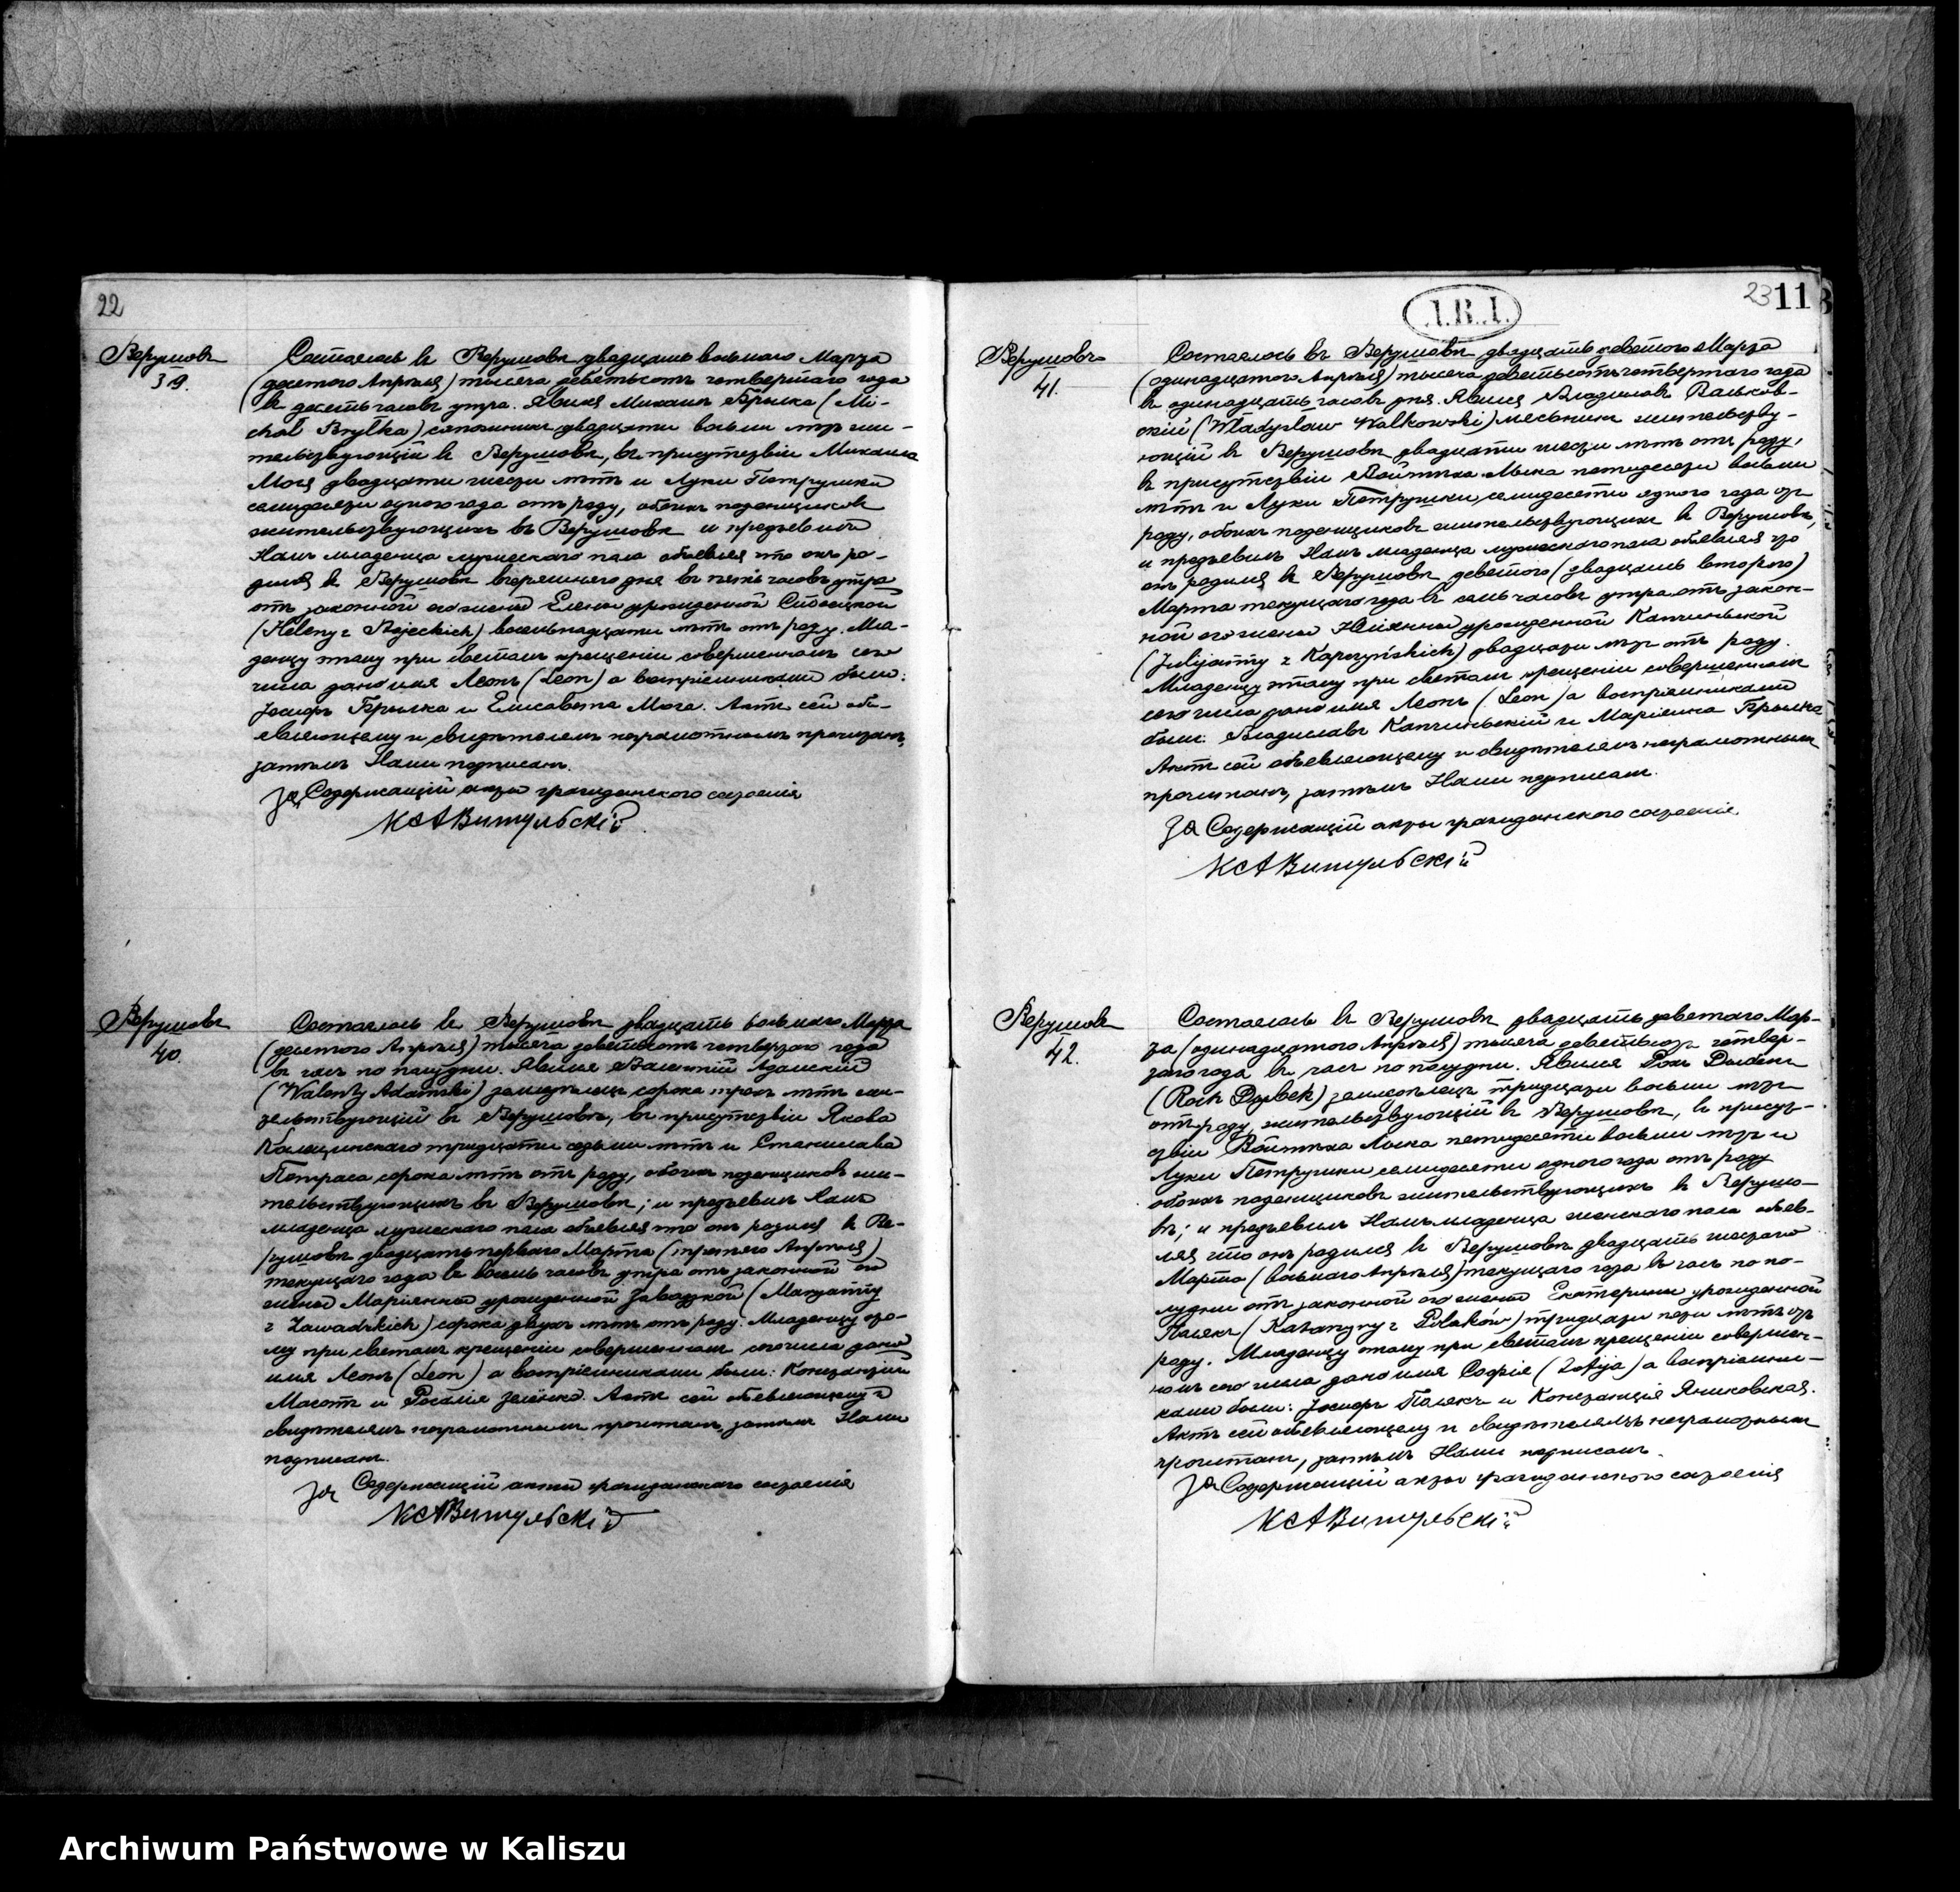 22
Верушовъ
39.
Состоялось въ Верушовѣ двадцать восьмаго Марта
(десятого Апрѣля) тысяча девятьсотъ четвертаго года
въ десять часовъ утра. Явился Михаилъ Брылка (Mi-
chał Bryłka) сапожникъ двадцати восьми лѣтъ жи-
тельствующій въ Верушовѣ, въ присутствіи Михаила
Мося двадцати шести лѣтъ и Луки Петрушки
семидесяти одного года отъ роду, обоихъ поденщиковъ
жительствующихъ въ Верушовѣ и предъявилъ
Намъ младенца мужескаго пола объявляя что онъ ро-
дился въ Верушовѣ вчерашняго дня въ пять часовъ утра
отъ законной его жены Елены урожденной
(Heleny z Bojeckich) восемнадцати лѣтъ отъ роду. Мла-
денцу этому при святомъ крещеніи совершенномъ сего
числа дано имя Леонъ (Leon) а воспріемниками были:
Іосифъ Брылка и Елисавета Мога. Актъ сей объ-
являющему и свидѣтелямъ неграмотнымъ прочитанъ,
затѣмъ Нами подписанъ.
За Содержащій акты гражданского состоянія
КсАВитульскій
Верушовъ
40.
Состоялось въ Верушовѣ двадцать восьмаго Марта
(десятого Апрѣля) тысяча девятьсотъ четвертаго года
въ часъ по полудни. Явился Валентій Адамскій
(Walenty Adamski) земледѣлецъ сорока трехъ лѣтъ жи-
тельствующій въ Верушовѣ, въ присутствіи Якова
тридцати седьми лѣтъ и Станислава
Петраса сорока лѣтъ отъ роду, обоихъ поденщиковъ жи-
тельствующихъ въ Верушовѣ; и предъявилъ Намъ
младенца мужескаго пола объявляя что онъ родился въ Ве-
рушовѣ двадцать перваго Марта (третяго Апрѣля)
текущаго года въ восемь часовъ утра отъ законной его
жены Маріянны урожденной Завадзкой (Maryanny
z Zawadzkich) сорока двухъ лѣтъ отъ роду. Младенцу это-
му при святомъ крещеніи совершенномъ сегочисла дано
имя Леонъ (Leon) а воспріемниками были: Константій
и Розалія. Актъ сей объявляющему и
свидѣтелямъ неграмотнымъ прочитанъ, затѣмъ Нами
подписанъ.
За Содержащій акты гражданскаго состоянія
КсАВитульскій
I.R.I.
23 11
Верушовъ
41.
Состоялось въ Верушовѣ двадцать девятого Марта
(одинадцатого Апрѣля) тысяча девятьсотъ четвертаго года
въ одинадцать часовъ дня. Явился Владиславъ Вальков-
скій (Władysław Walkowski) мясникъ жительству-
ющій въ Верушовѣ двадцати шести лѣтъ отъ роду,
въ присутствіи Войтѣха Лыка пятидесяти восьми
лѣтъ и Луки Петрушки семидесяти одного года отъ
роду, обоихъ поденщиковъ жительствующихъ въ Верушовѣ,
и предъявилъ Намъ младенца мужескаго пола объявляя что
онъ родился въ Верушовѣ девятого (двадцать второго)
Марта текущаго года въ семь часовъ утра отъ закон-
ной его жены Юліянны урожденной Капчиньской
(Julijanny z Kapczyńskich) двадцати лѣтъ отъ роду.
Младенцу этому при святомъ крещеніи совершенномъ
сего числа дано имя Леонъ (Leon) а воспріемниками
были: Владиславъ Капчиньскій и Маріянна Брылка
Актъ сей объявляющему и свидѣтелямъ неграмотнымъ
прочитанъ, затѣмъ Нами подписанъ.
За Содержащій акты гражданского состоянія
КсАВитульскій
Верушовъ
42.
Состоялось въ Верушовѣ двадцать девятаго Мар-
та (одинадцатого Апрѣля) тысяча девятьсотъ четвер-
таго года въ часъ по полудни. Явился Рохъ
(Roch) земледѣлецъ тридцати восьми лѣтъ
отъ роду, жительствующій въ Верушовѣ, въ присут-
ствіи Войтѣха Лыка пятидесяти восьми лѣтъ и
Луки Петрушки семидесяти одного года отъ роду
обоихъ поденщиковъ жительствующихъ въ Верушо-
вѣ; и предъявилъ Намъ младенца женскаго пола объяв-
ляя что онъ родился въ Верушовѣ двадцать шестаго
Марта (восьмаго Апрѣля) текущаго года въ часъ по по-
лудни отъ законной его жены Екатерины урожденной
Полякъ (Katarzyny z Polaków) тридцати пяти лѣтъ отъ
роду. Младенцу этому при святомъ крещеніи совершен-
номъ сего числа дано имя Софія (Zofija) а воспріемни-
ками были: Іосифъ Полякъ и Констанція Яниковская.
Актъ сей объявляющему и свидѣтелямъ неграмотнымъ
прочитанъ, затѣмъ Нами подписанъ.
За Содержащій акты гражданского состоянія
КсАВитульскій
Archiwum Państwowe w Kaliszu